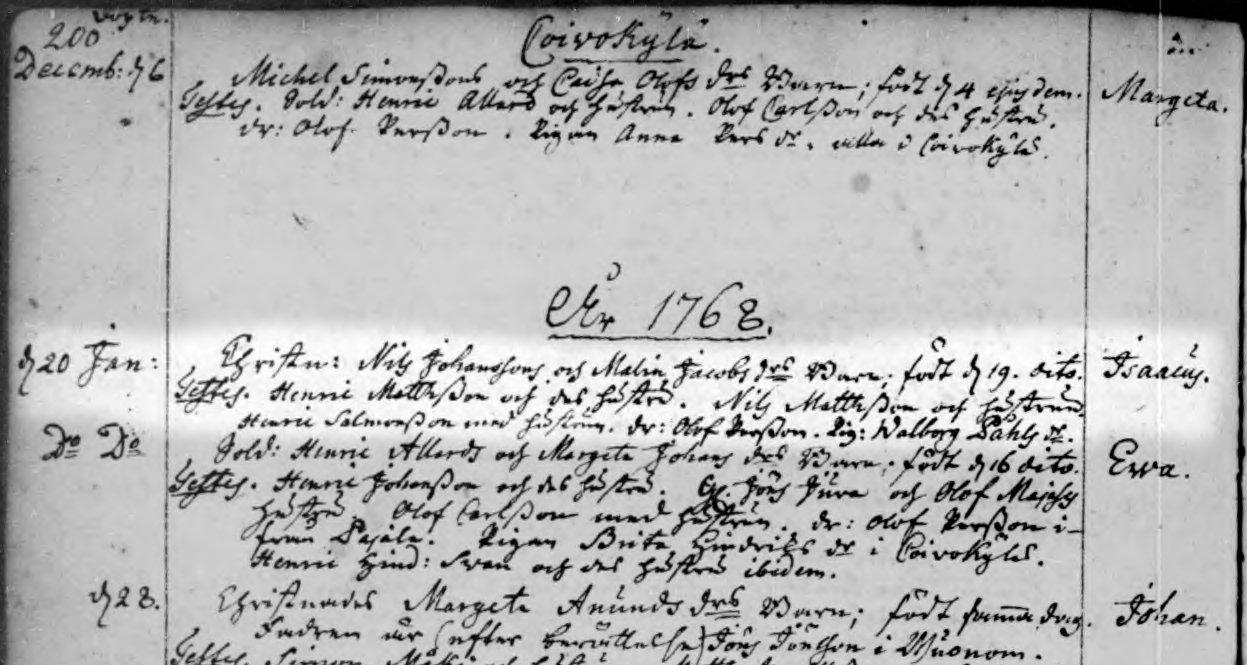 200
Coivokylä.
Decemb: d 6 Michel Simonssons och Caisa Olofs drs Barn; född d 4 ejusdem. Margeta.
Testes. Sold: Henric Allard och hustru. Olof Carlsson och des hustru.
dr: Olof Persson. Pigan Anna Pers dr. alla i Coivokylä.
År 1768.
d 20 Jan: Christn: Nils Johanssons och Malin Jacobs drs Barn; född d 19. dito. Isaacus.
Testes. Henric Mattsson och des hustru. Nils Mattsson och hustrun
Henric Salmonsson med hustrun. dr: Olof Persson. Pig: Walborg Påhls dr.
Do Do Sold: Henric Allards och Margeta Johans drs Barn. född d 16 dito. Ewa.
Testes. Henric Johansson och des hustru. Jöns och Olof
hustru. Olof Carlsson med hustrun. dr: Olof Persson i-
från Pajala. Pigan Brita Hindrichs dr i Coivokylä.
Henric Hind: Swan och des hustru ibidem.
d 28. Christnades Margeta Anunds drs Barn; född samma dag. Johan.
Fadren är (efter berättelse) Jöns Jönsson i Muonom.
Testes. Simon